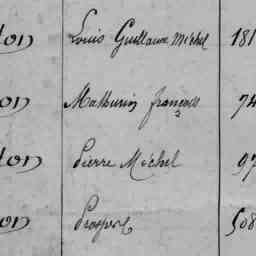 ton Louis Guillaume Michel 181
ton Mathurin françois 74
ton Pierre Michel 97
ton Prosper 508